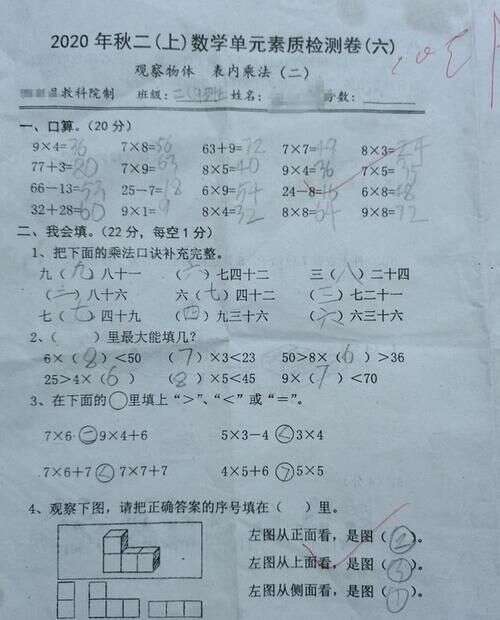 2020年秋二(上)数学单元素质检测卷(六)
观察物体 表内乘法(二)
县教科院制 班级: 姓名: 分数:
一、口算。(20分)
9×4=36 7×8=56 63+9=72 7×7=49 8×3=
77+3=80 7×9=63 8×5=40 9×4=36 7×5=35
66-13=53 25-7=18 6×9=54 24-8= 6×8=48
32+28=60 9×1=9 8×4=32 8×8=64 9×8=72
二、我会填。(22分,每空1分)
1、把下面的乘法口诀补充完整。
九(九)八十一 (六)七四十二 三(八)二十四
(二)八十六 六(七)四十二 (三)七二十一
七(七)四十九 (四)九三十六 (六)六三十六
2、( )里最大能填几?
6×(8)<50 (7)×3<23 50>8×(6)>36
25>4×(6) (8)×5<45 9×(7)<70
3、在下面的○里填上“>”、“<”或“=”。
7×6=9×4+6 5×3-4<3×4
7×6+7<7×7+7 4×5+6>5×5
4、观察下图,请把正确答案的序号填在( )里。
左图从正面看,是图(②)。
左图从上面看,是图(③)。
左图从侧面看,是图(①)。